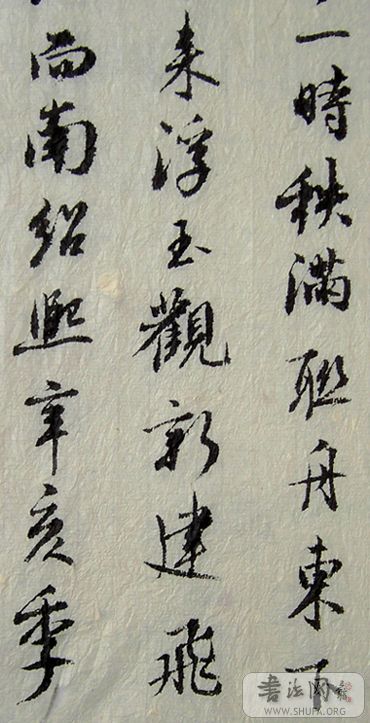 時秩滿聯舟東下
来浮玉觀新建飛
而南紹熙辛亥季
書法网
WWW.SHUFA.ORG